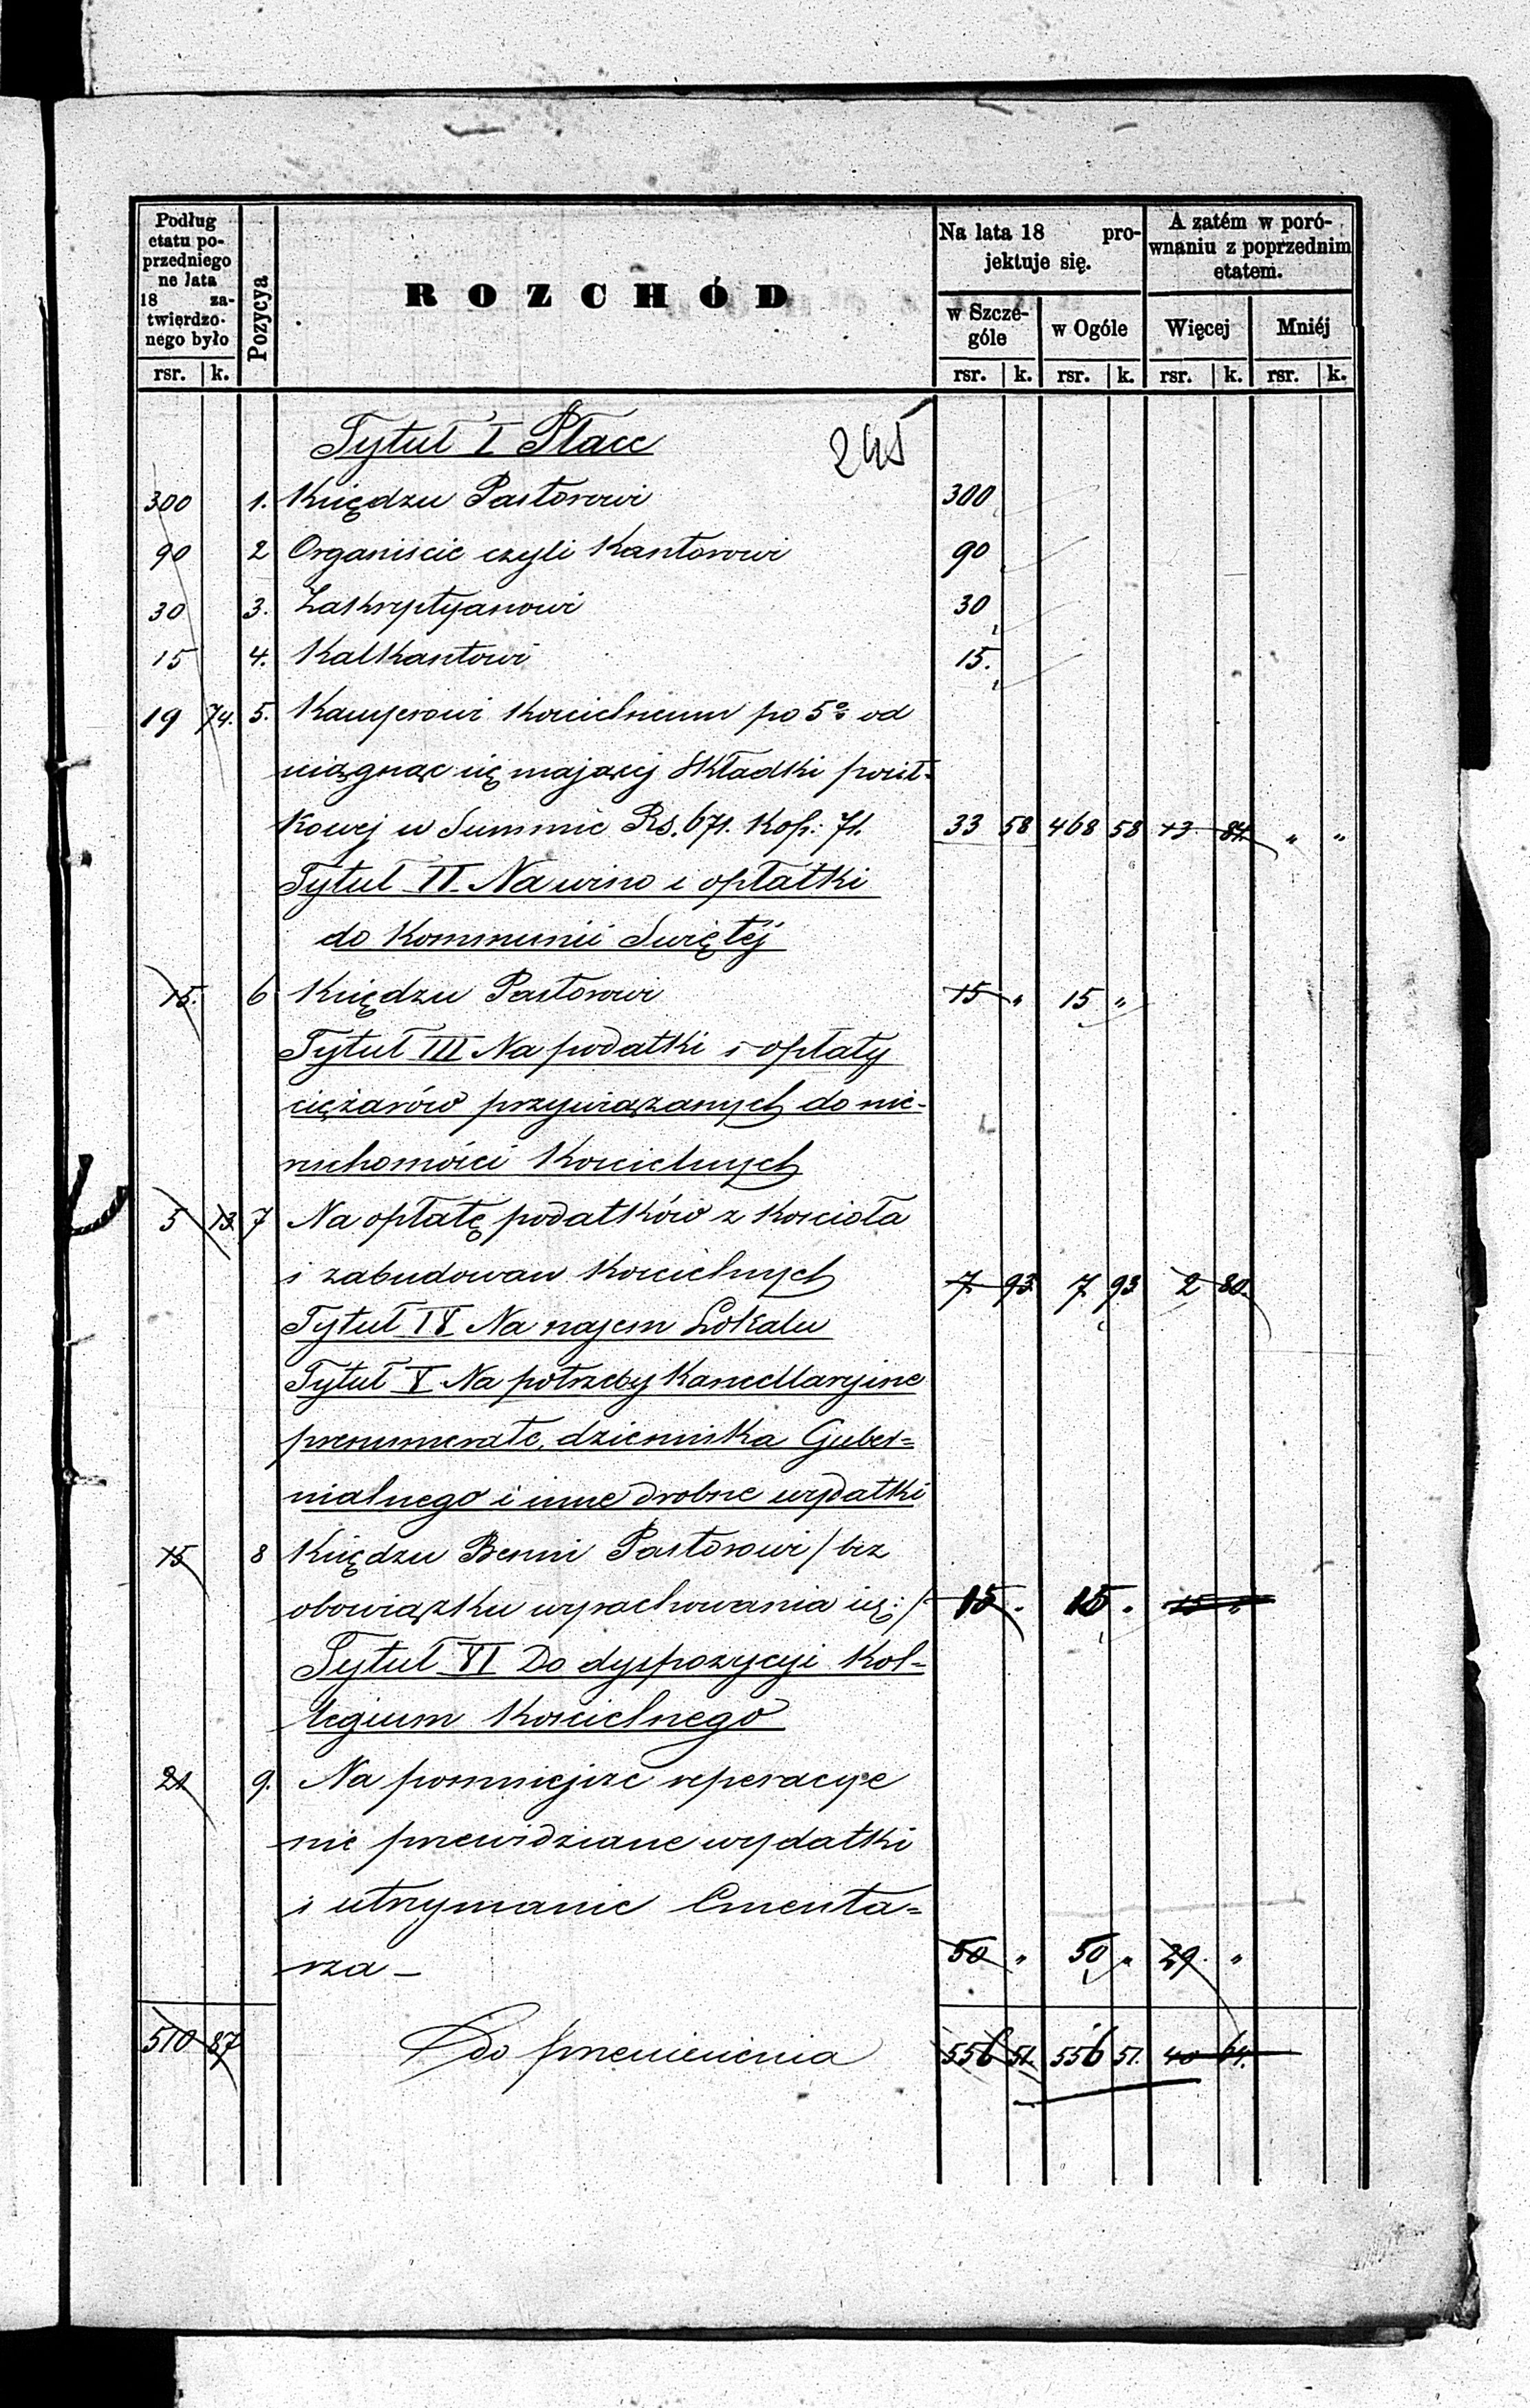 Podług etatu poprzedniego ne lata 18 zatwierdzonego było
rsr. k.
Pozycya
ROZCHÓD
Na lata 18 projektuje się.
w Szczególe
w Ogóle
A zatém w porównaniu z poprzednim etatem.
Więcej
Mniéj
rsr. k. rsr. k. rsr. k. rsr. k.
Tytuł I Płace
245
300 1. Księdzu Pastorowi 300
90 2 Organiscie czyli Kantorowi 90
30 3. Zakryptyanowi 30
15 4. Kalkantowi 15.
19 74. 5. Kassyerowi Koscielnemu po 5% od
sciągnąc się mającej Składki posił-
kowej w Summie Rs. 671. Kop: 71. 33 58 468 58 13 84 " "
Tytuł II. Na wino i opłatki
do Kommunii Swiętéj
15. 6 Księdzu Pastorowi 15 " 15 "
Tytuł III Na podatki i opłaty
ciężarów przywiązanych do nie-
ruchomości Koscielnych
5 13. 7 Na opłatę podatków z Koscioła
i zabudowan Koscielnych 7. 93 7. 93 2 80.
Tytuł IV Na najem Lokalu
Tytuł V Na potrzeby Kancellaryjne
prenumerate, dziennika Guber=
nialnego i inne drobne wydatki
15 8 Księdzu Benni Pastorowi / bez
obowiązku wyrachowania się: / 15 . 15 . 15 "
Tytuł VI Do dyspozycyi Kol-
legium Koscielnego
21 9. Na pomniejsze reperacye
nie przewidziane wydatki
i utrzymanie Cmenta=
rza — 50 " 50 " 29. "
510 87 Do przeniesienia 556 51. 556 51. 40 64.